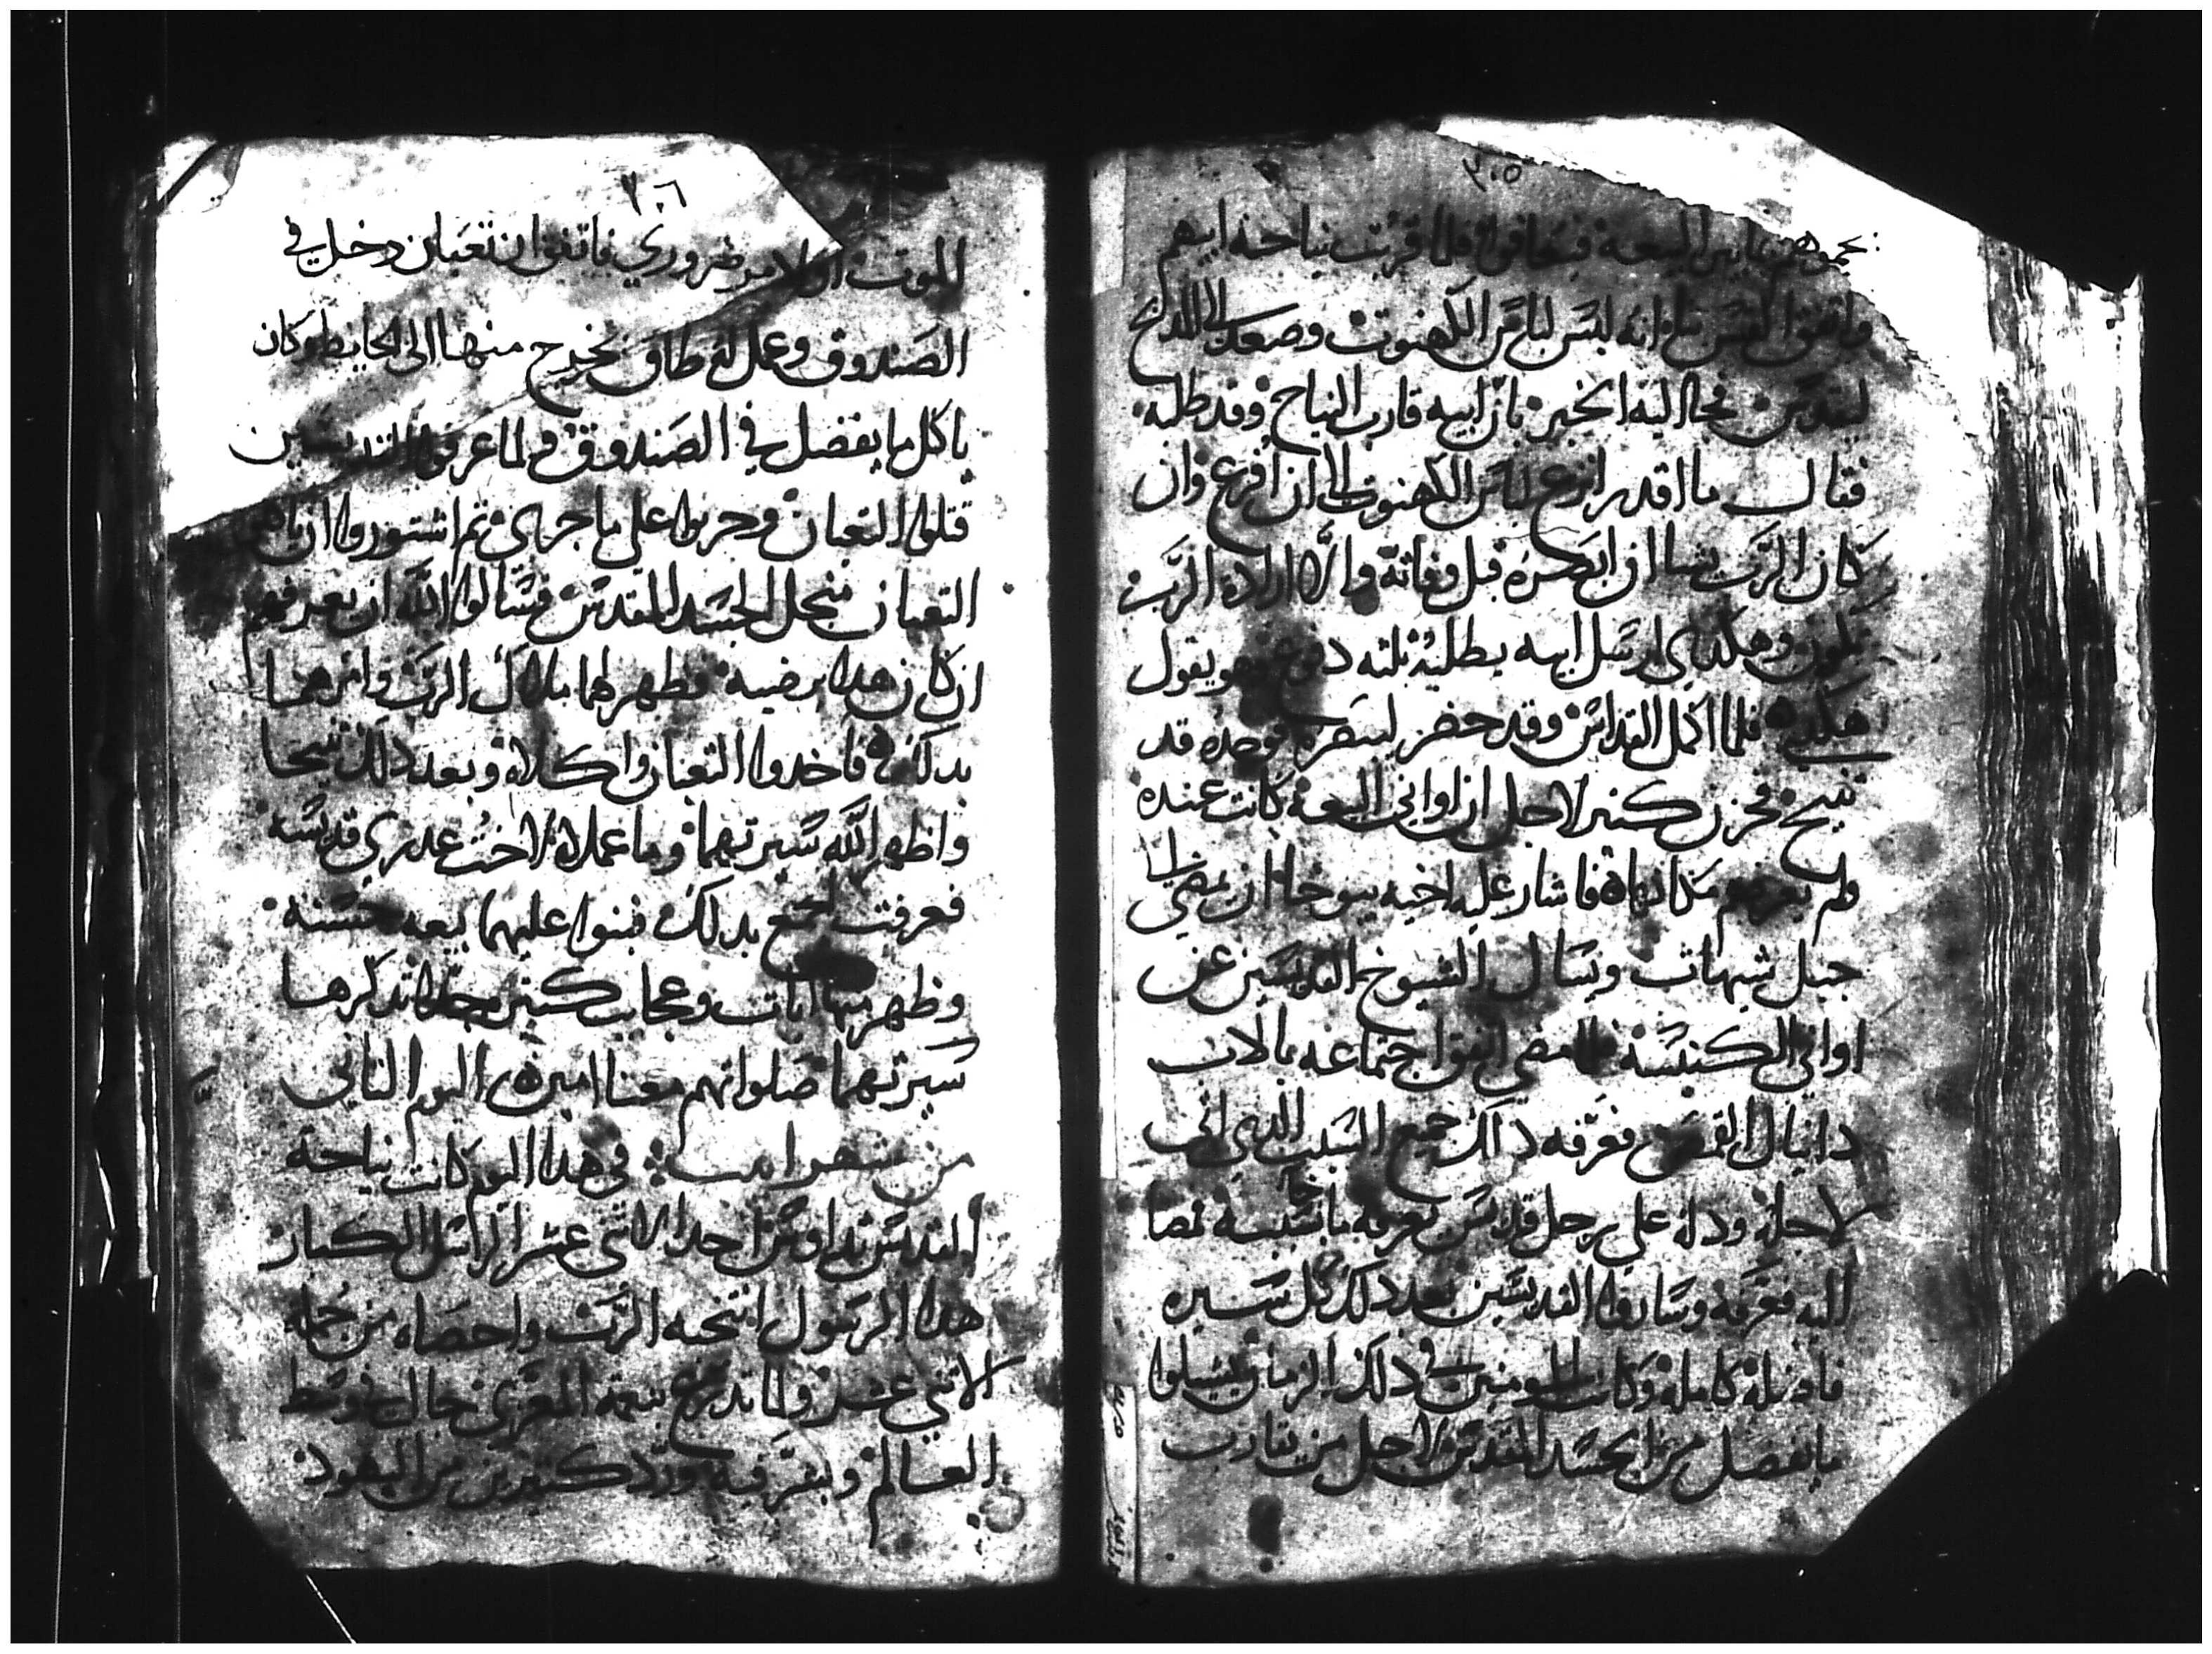 ٣٠٥
فلما قربت نياحة ابيهم
واتفق القس انه لبس لباس الكهنوت وصعد الى المذبح
ليقدس فجا اليه الخبر بان ابيه قارب النياح وقد طلبه
فقال ما اقدر انزع لباس الكهنوت الا ان افرغ وان
كان الرب يشا ان ابصره قبل وفاته والا ارادة الرب
تكون وهكدي ارسل ابيه يطلبه ثلثه دفوع وهو يقول
هكدي فلما اكمل القداس وقد حضر فوجده قد
تنيح فحزن كثير لاجل ان اواني البيعة كانت عنده
ولم يعرفهم مكانها فاشار عليه اخيه يوحنا ان يمضي الى
جبل شيهات ويسال الشيوخ القديسين عن
اواني الكنيسة مضي اتفق اجتماعه بالاب
دانيال القمص فعرفه داك جميع السبب الدي اتى
لاجله ودله على رجل قديس يعرفه فمضا
اليه فعرفه القديسين بعد دلك كل سيره
فاضله كامله وكانت المومنين في دلك الزمان يشيلوا
ما يفضل من الجسد المقدس لاجل من يقارب
٣٠٦
الموت او لامر ضروري فاتفق ان تعبان دخل في
الصندوق وعمل له طاق يخرج منها الى الحايط وكان
ياكل ما يفضل في الصندوق ولما عرفوا القديسين
قتلوا التعبان وحزنوا على ما جرى ثم اشتوروا ان ياكلوا
التعبان من اجل الجسد المقدس فسالوا الله ان يعرفهم
ان كان هدا يرضيه فظهر لهما ملاك الرب وامرهما
بدلك فاخدوا التعبان واكلاه وبعد دلك تنيحا
واظهر الله سيرتهما وما عملاه لاخت عدرى قديسه
فعرفت الجميع بدلك فبنوا عليهما بيعه حسنه
وظهر منها ايات وعجايب كتير تدكرها
سيرتهما صلواتهم معنا امين اليوم التاني
من شهر ابيب في هدا اليوم كانت نياحة
القديس تداوس احد الاثني عشر الرسل الكبار
هدا الرسول انتخبه الرب واحصاه من جملة
الاتني عشر ولما تدرع بنعمة المعزي جال في وسط
العالم وبشر فيه ورد كتيرين من اليهود